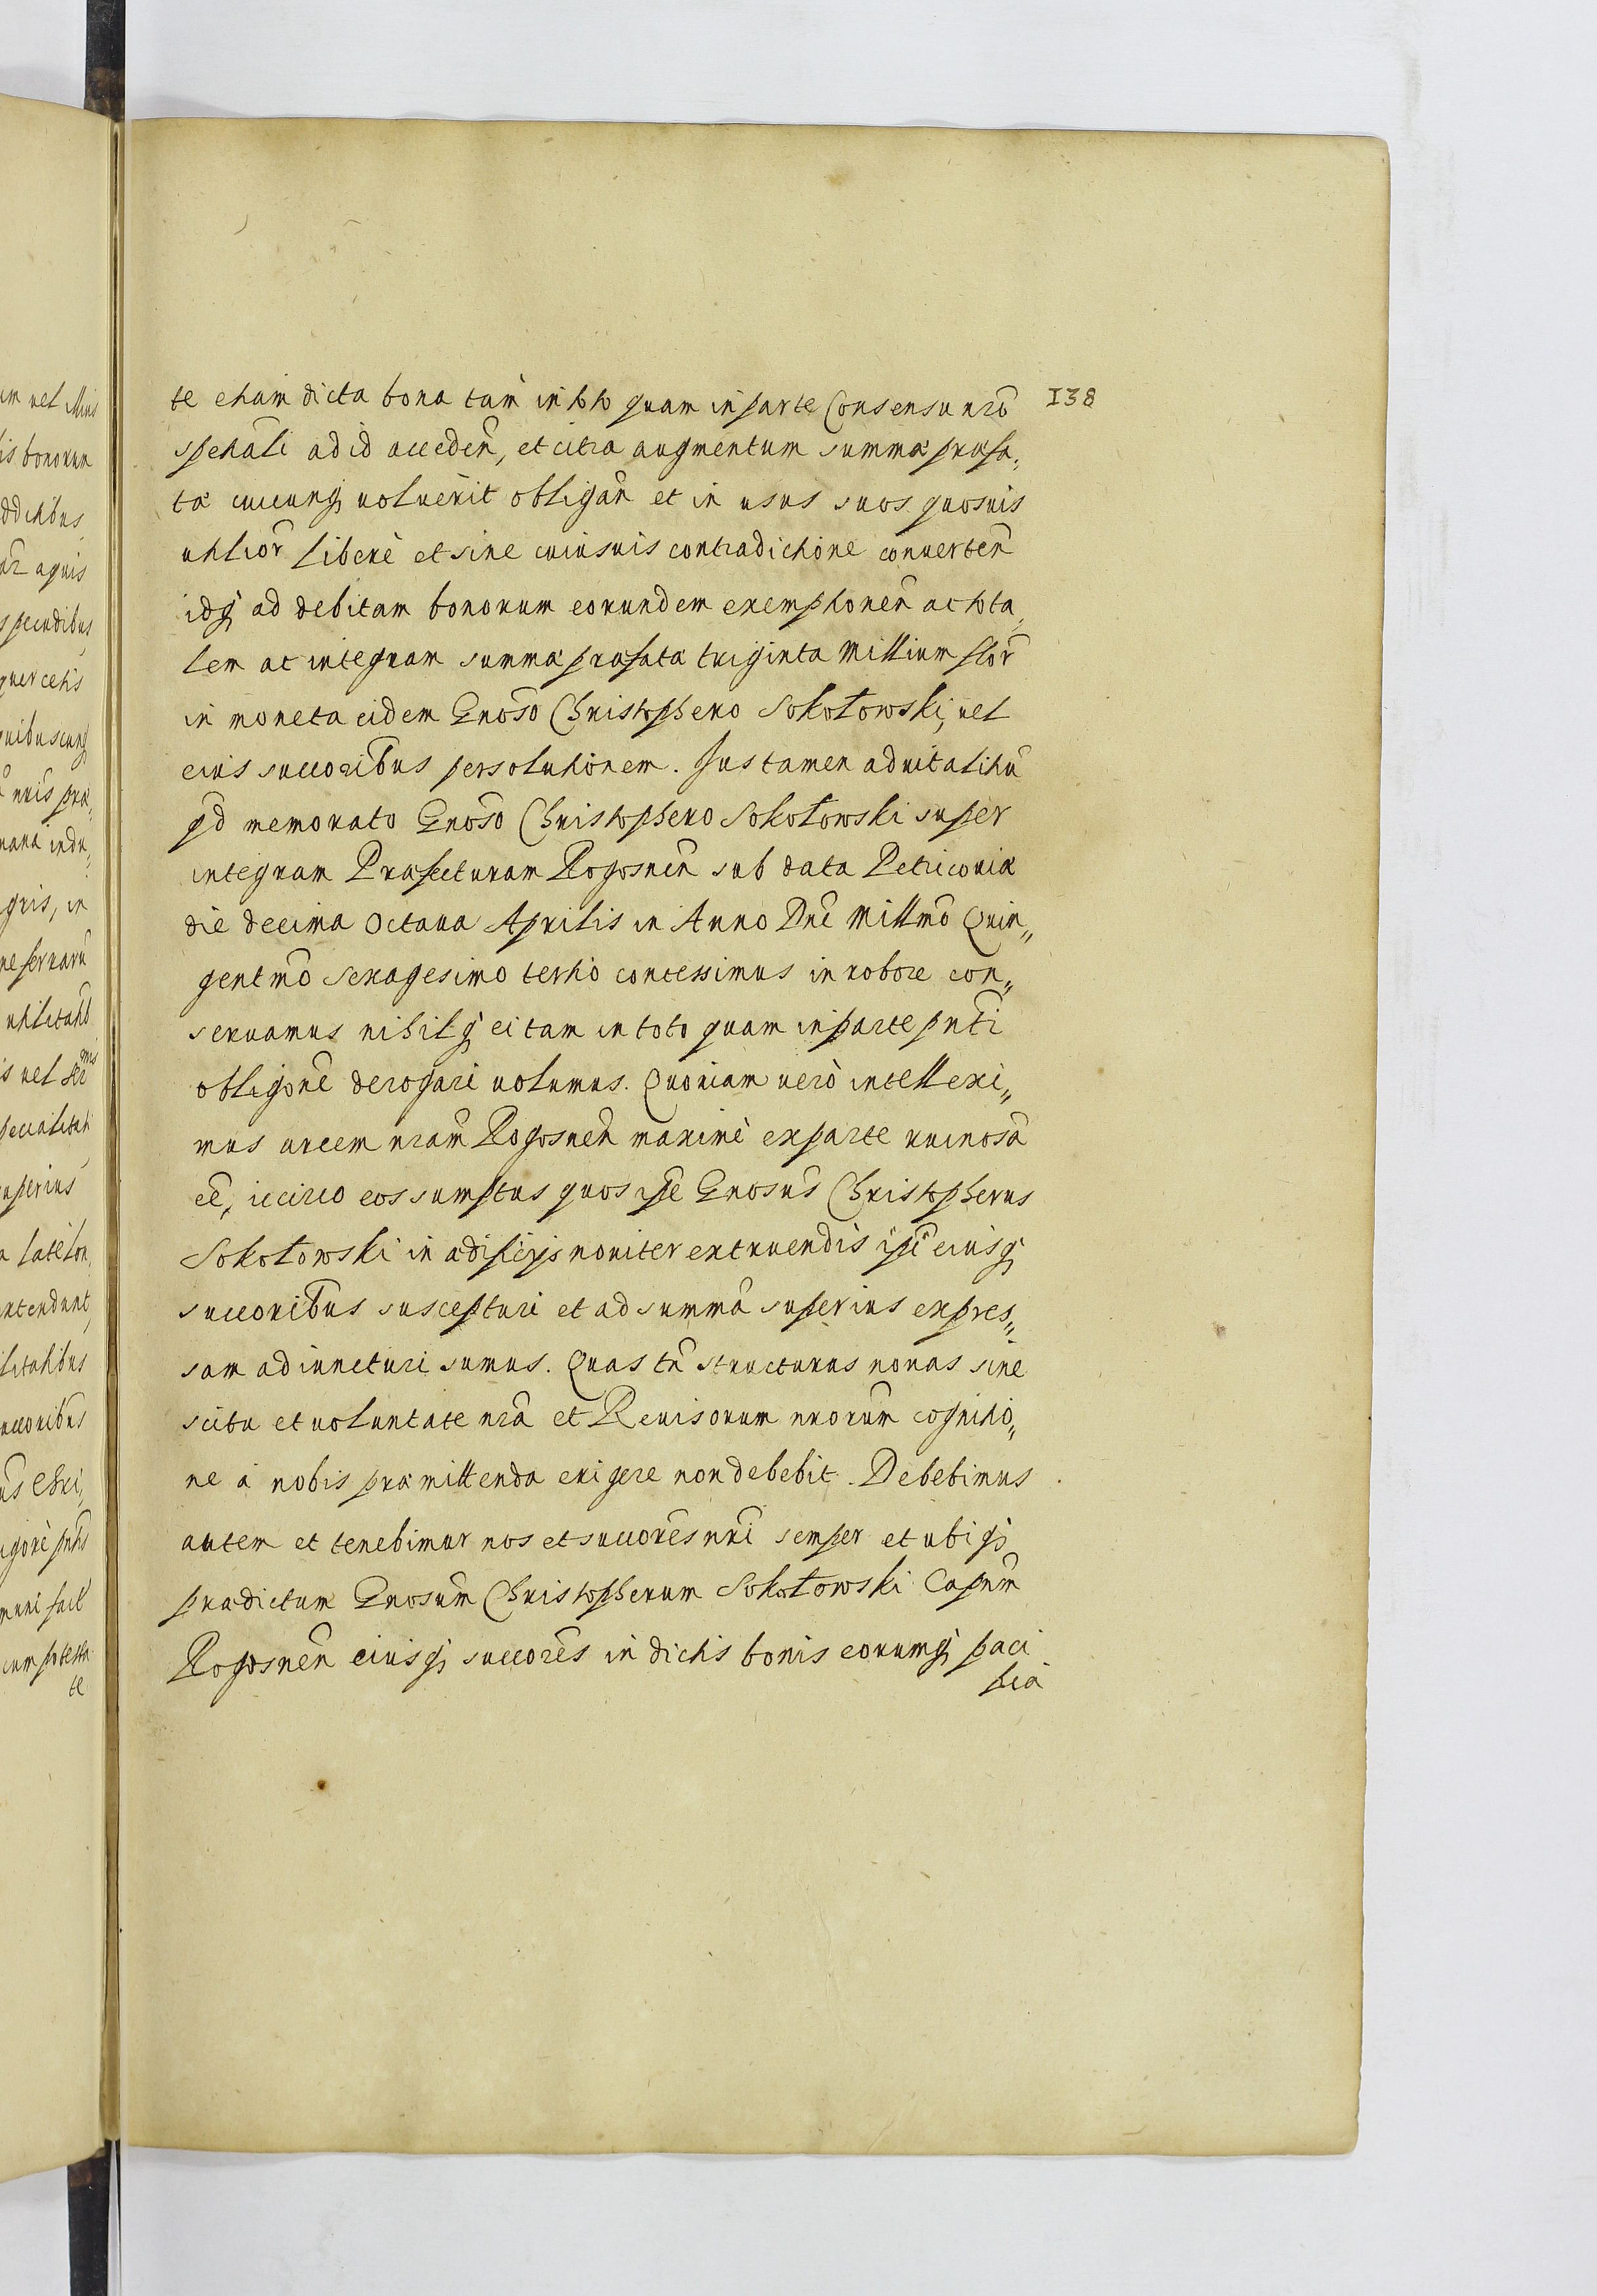 te etiam dicta bona tam in toto quam in parte Consensu nr̃o
138
spetiali ad id acceden̄, et citra augmentum summæ præfa,
tæ cuicunq̨ voluerit obligan̄ et in usus suos quosuis
utilior̄ liberè et sine cuiusuis contradictione conuerten̄
idq̨ ad debitam bonorum eorundem exemptionem ac tota,
lem ac integram summæ præfatæ triginta Millium flor̄
in moneta eidem Gnoso Christophero Sokołowski, uel
eius succoribus persolutionem. Jus tamen aduitalitiū
qd memorato Gnoso Christophero Sokołowski super
integram Præfecturam Rogosnen̄ sub data Petricouiæ
die decima Octaua Aprilis in Anno Dnī Millmō Quin„
gentmō sexagesimo tertio contessimus in robore con„
seruamus nihilq̨ ei tam in toto quam in parte pn̄ti
obligōne derogari uolumus. Quoniam uerò intellexi„
mus arcem nrām Rogosnen̄ maximè ex parte ruinosā
eē, iccirco eos sumptus quos ipse Gnosus Christopherus
Sokołowski in ædificijs nouiter extruendis ipī eiusq̨
succoribus suscepturi et ad summā superius expres„
sam adiuncturi sumus. Quas tn̄ structuras nouas sine
scitu et uoluntate nrā et Reuisorum nrorum cognitio„
ne à nobis præmittenda exigere non debebit. Debebimus
autem et tenebimur nos et succores nri semper et ubiq̨
prædictum Gnosum Christopherum Sokołowski Capnm
Rogosnen̄ eiusq̨ succores in dictis bonis eorumq̨ paci
ficà